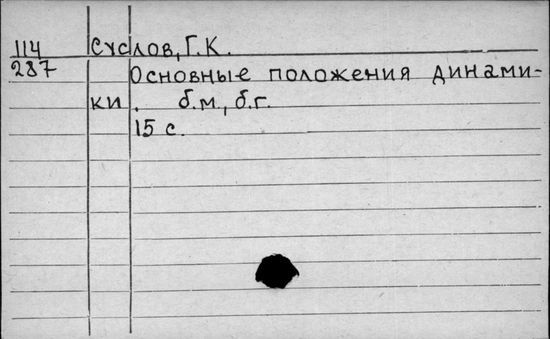 114 Суслов, Г.К.
287 Основные положения динами-
ки. б.м., б.г.
15 с.